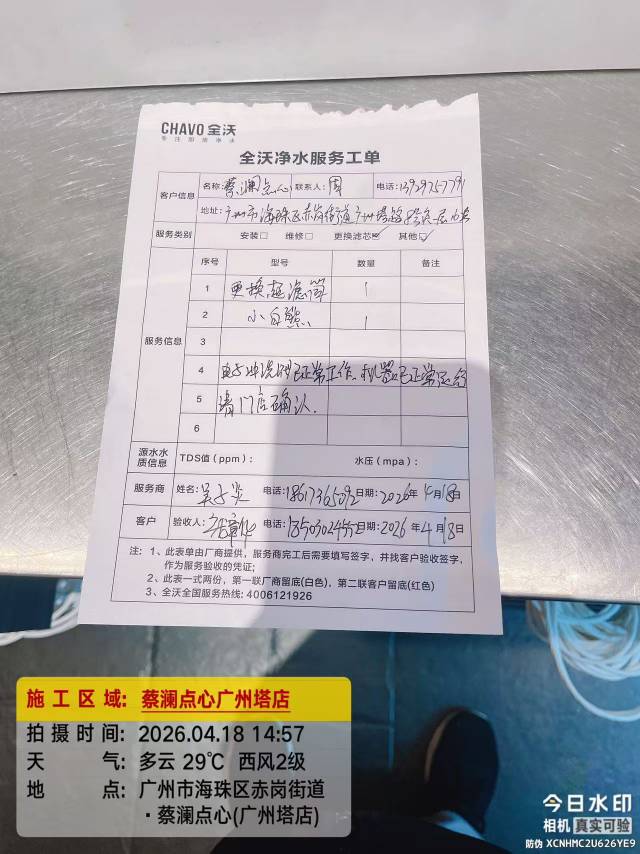 CHAVO 全沃
专注加热净水
全沃净水服务工单
客户信息 名称: 蔡澜点心 联系人: 周 电话: 13929757791
地址: 广州市海珠区赤岗街道广州塔
服务类别 安装□ 维修□ 更换滤芯☑ 其他☑
服务信息 序号 型号 数量 备注
1 更换超滤筒 1
2 小白熊 1
3
4 电子冲洗阀已正常工作.机器已正常运行
5 请门店确认.
6
源水水质信息 TDS值(ppm): 水压(mpa):
服务商 姓名: 电话: 18617365092 日期: 2026年4月18日
客户 验收人: 电话: 18503024452 日期: 2026年4月18日
注: 1、此表单由厂商提供，服务商完工后需要填写签字，并找客户验收签字，
作为服务验收的凭证;
2、此表一式两份，第一联厂商留底(白色)，第二联客户留底(红色)
3、全沃全国服务热线: 4006121926
施工区域: 蔡澜点心广州塔店
拍摄时间: 2026.04.18 14:57
天 气: 多云 29℃ 西风2级
地 点: 广州市海珠区赤岗街道
·蔡澜点心(广州塔店)
今日水印
相机 真实可验
防伪 XCNHMC2U626YE9